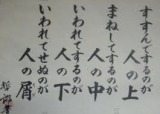 すすんでするのが
人の上
まねしてするのが
人の中
いわれてするのが
人の下
いわれてせぬのが
人の屑